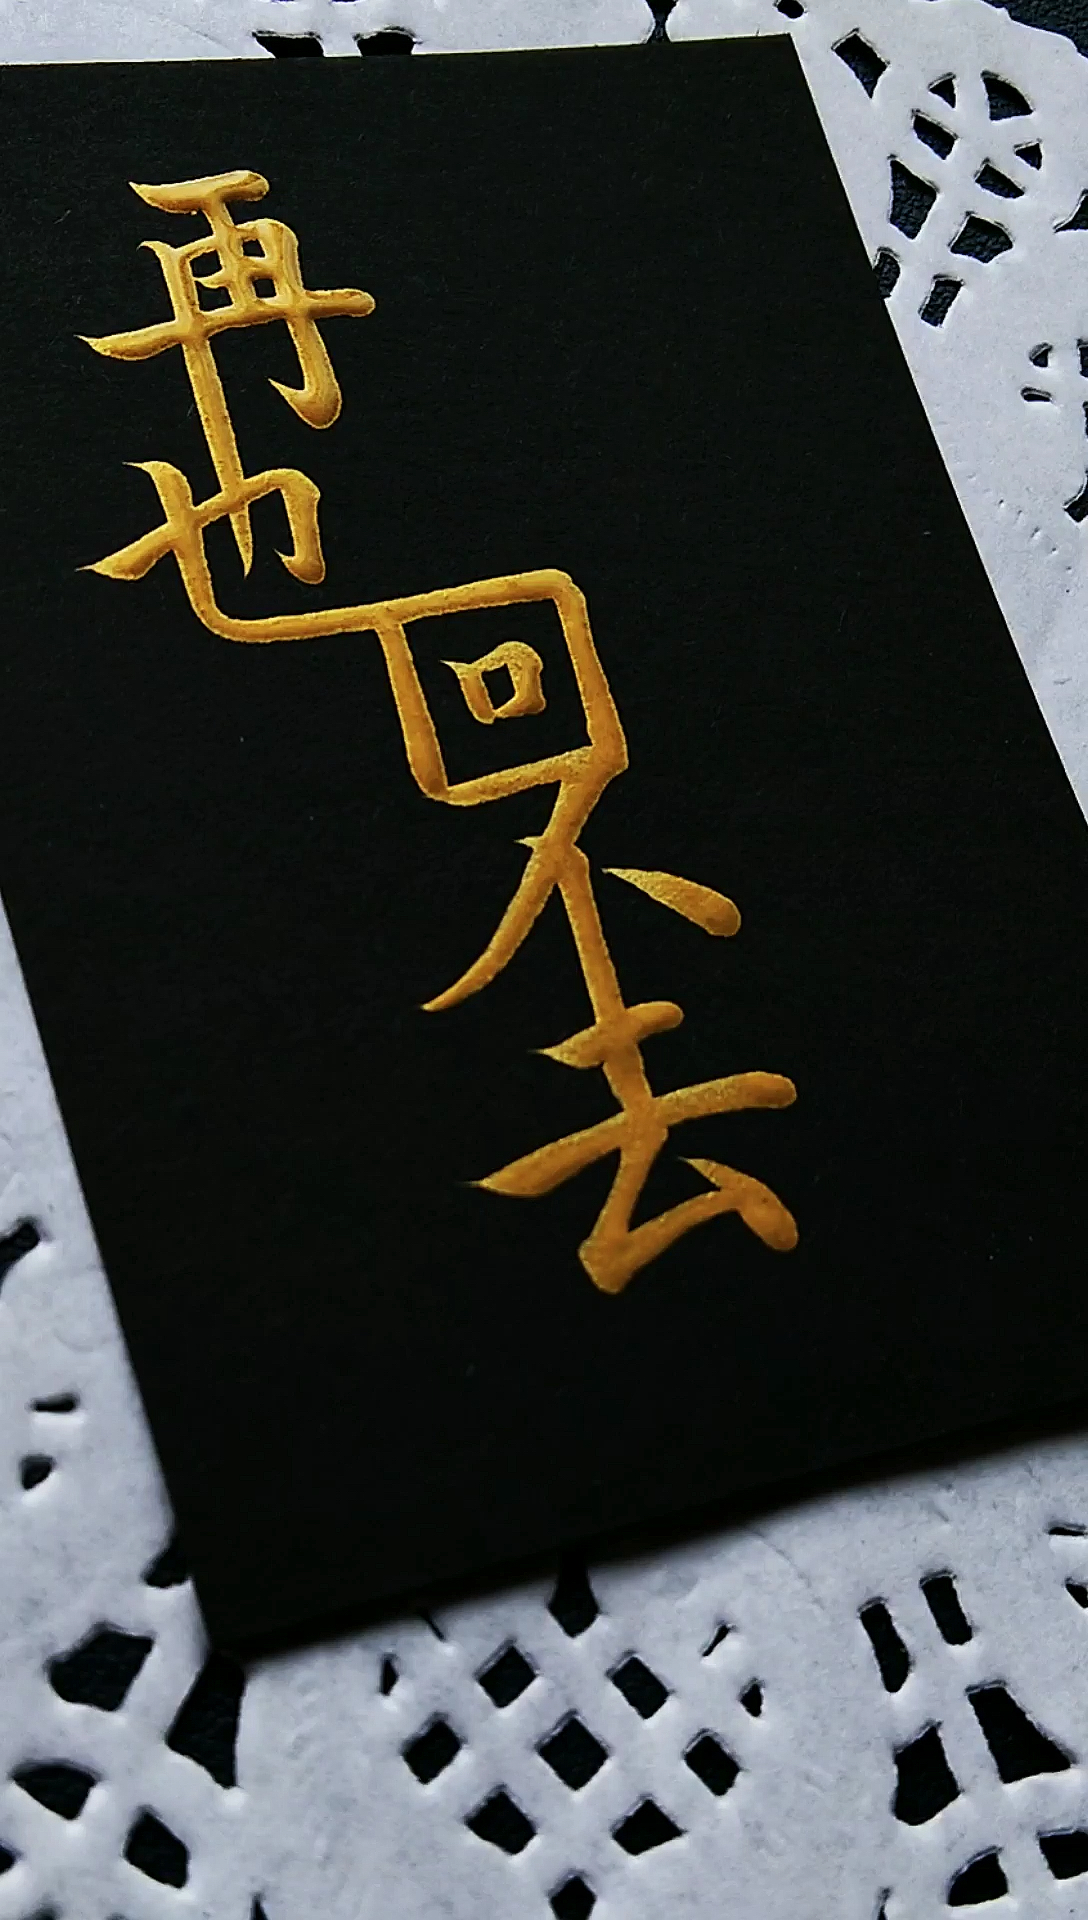 再也回不去